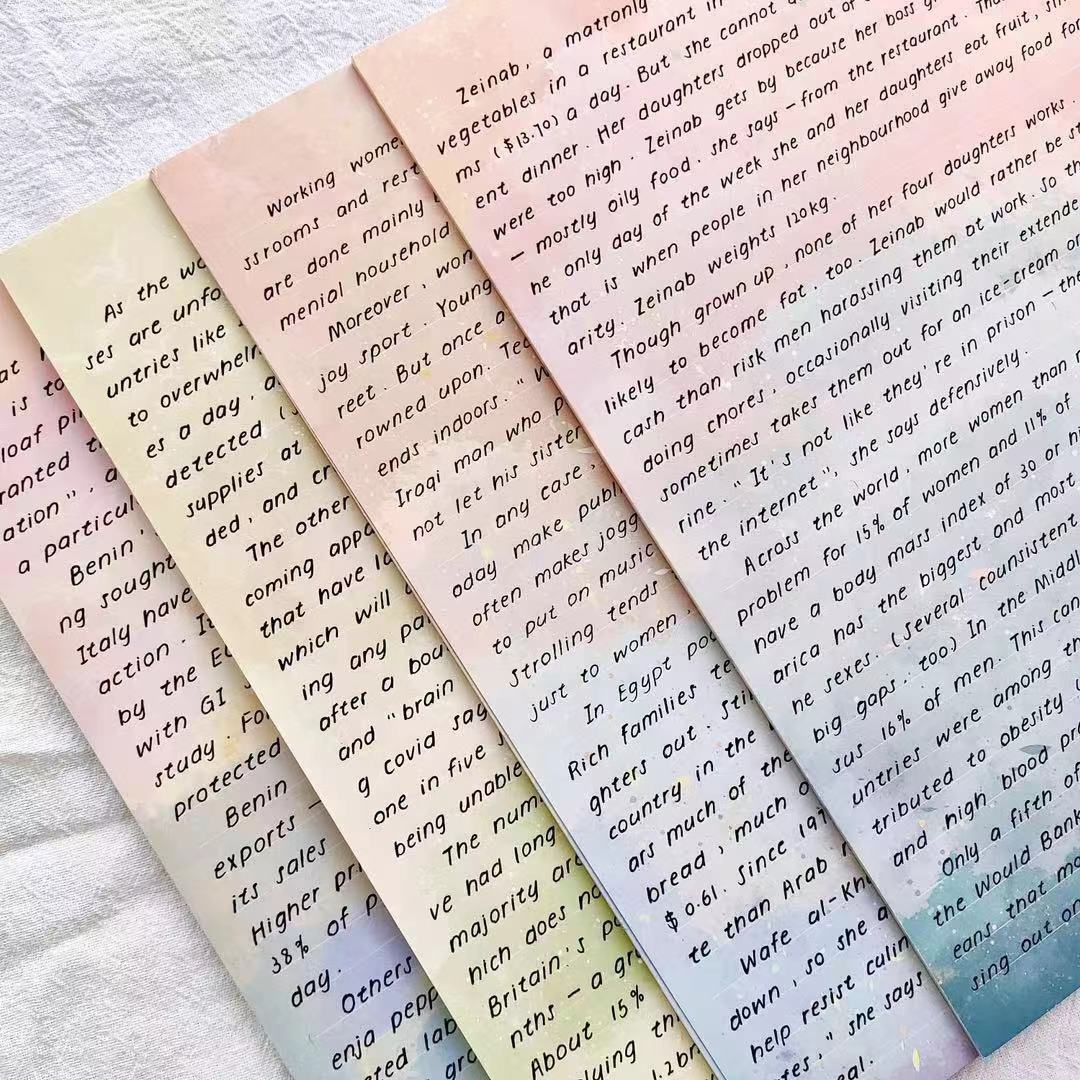 Zeinab, a matronly
vegetables in a restaurant in
ms ($13.70) a day. But she cannot
ent dinner. Her daughters dropped out of
were too high. Zeinab gets by because her boss
— mostly oily food, she says — from the restaurant.
he only day of the week she and her daughters eat fruit,
that is when people in her neighbourhood give away food for
arity. Zeinab weights 120kg.
Though grown up, none of her four daughters works.
likely to become fat, too. Zeinab would rather be
cash than risk men harassing them at work. So
doing chores, occasionally visiting their extende
sometimes takes them out for an ice-cream or
rine. "It's not like they're in prison — the
the internet", she says defensively.
Across the world, more women than
problem for 15% of women and 11% of
have a body mass index of 30 or
arica has the biggest and most
ne sexes. (Several counsistent
big gaps, too) In the Middl
sus 16% of men. This can
untries were among th
tributed to obesity
and high blood pr
Only a fifth of
the Would Bank
eans that
sing out on
Working wome
ssrooms and rest
are done mainly
menial household
Moreover, wom
joy sport. Young
reet. But once a
rowned upon. Tee
ends indoors. "W
Iraqi man who
not let his sister
In any case,
oday make publ
often makes jogg
to put on music
Strolling tends
just to women,
In Egypt po
Rich families te
ghters out. Sti
country in the
ars much of the
bread, much o
$ 0.61. Since 197
te than Arab
Wafe al-Kh
down, so she a
help resist culin
tes," she says
eal.
As the wo
ses are unfo
untries like
to overwhel
es a day, a
detected (
supplies at
ded, and cr
The other
coming appa
that have la
which will
ing any pa
after a bou
and "brain
g covid say
one in five
being unable
The num
ve had long
majority are
hich does no
Britain's po
nths — a gr
About 15%
plying th
1.2bn
at
is to
loaf pi
ranted t
ation", a
a particul
Benin'
ng sought
Italy have
action. It
by the Eu
with GI
study. For
protected
Benin —
exports —
its sales
Higher pri
38% of p
day.
Others
enja pepp
eted lab
gro